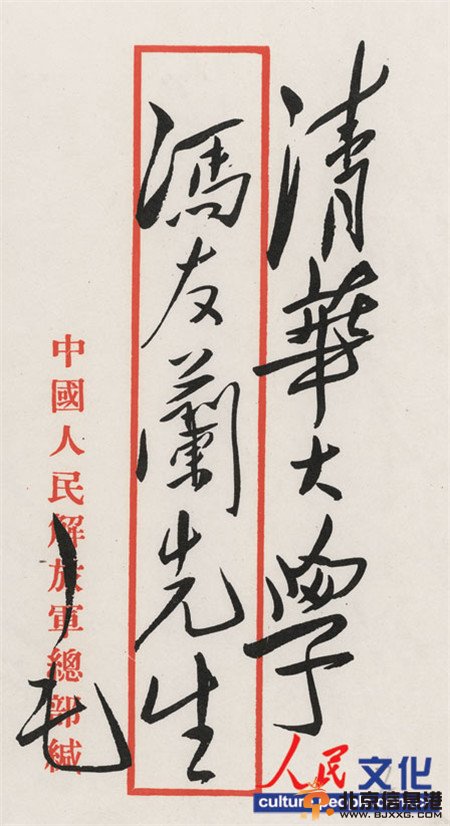 清華大學
馮友蘭先生
中國人民解放軍總部緘
毛
人民 文化
北京信息港
www.BJXXG.com